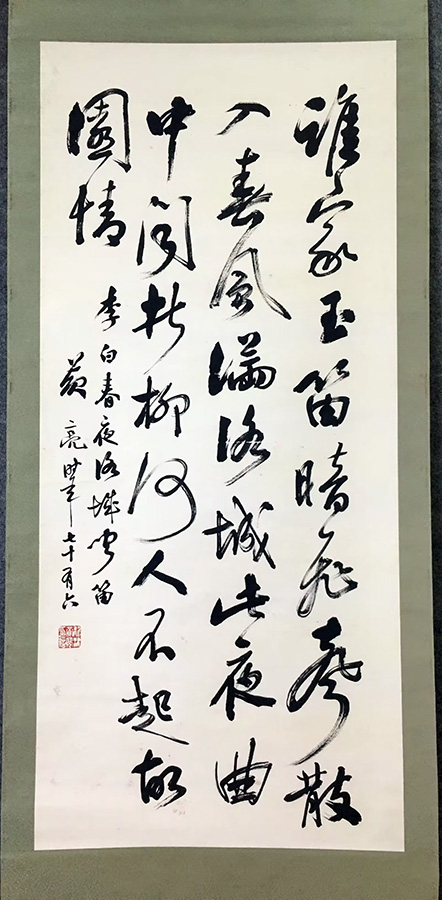 誰家玉笛暗飛聲散
入春風滿洛城此夜曲
中聞折柳何人不起故
園情
李白春夜洛城聞笛
亮時年七十有六